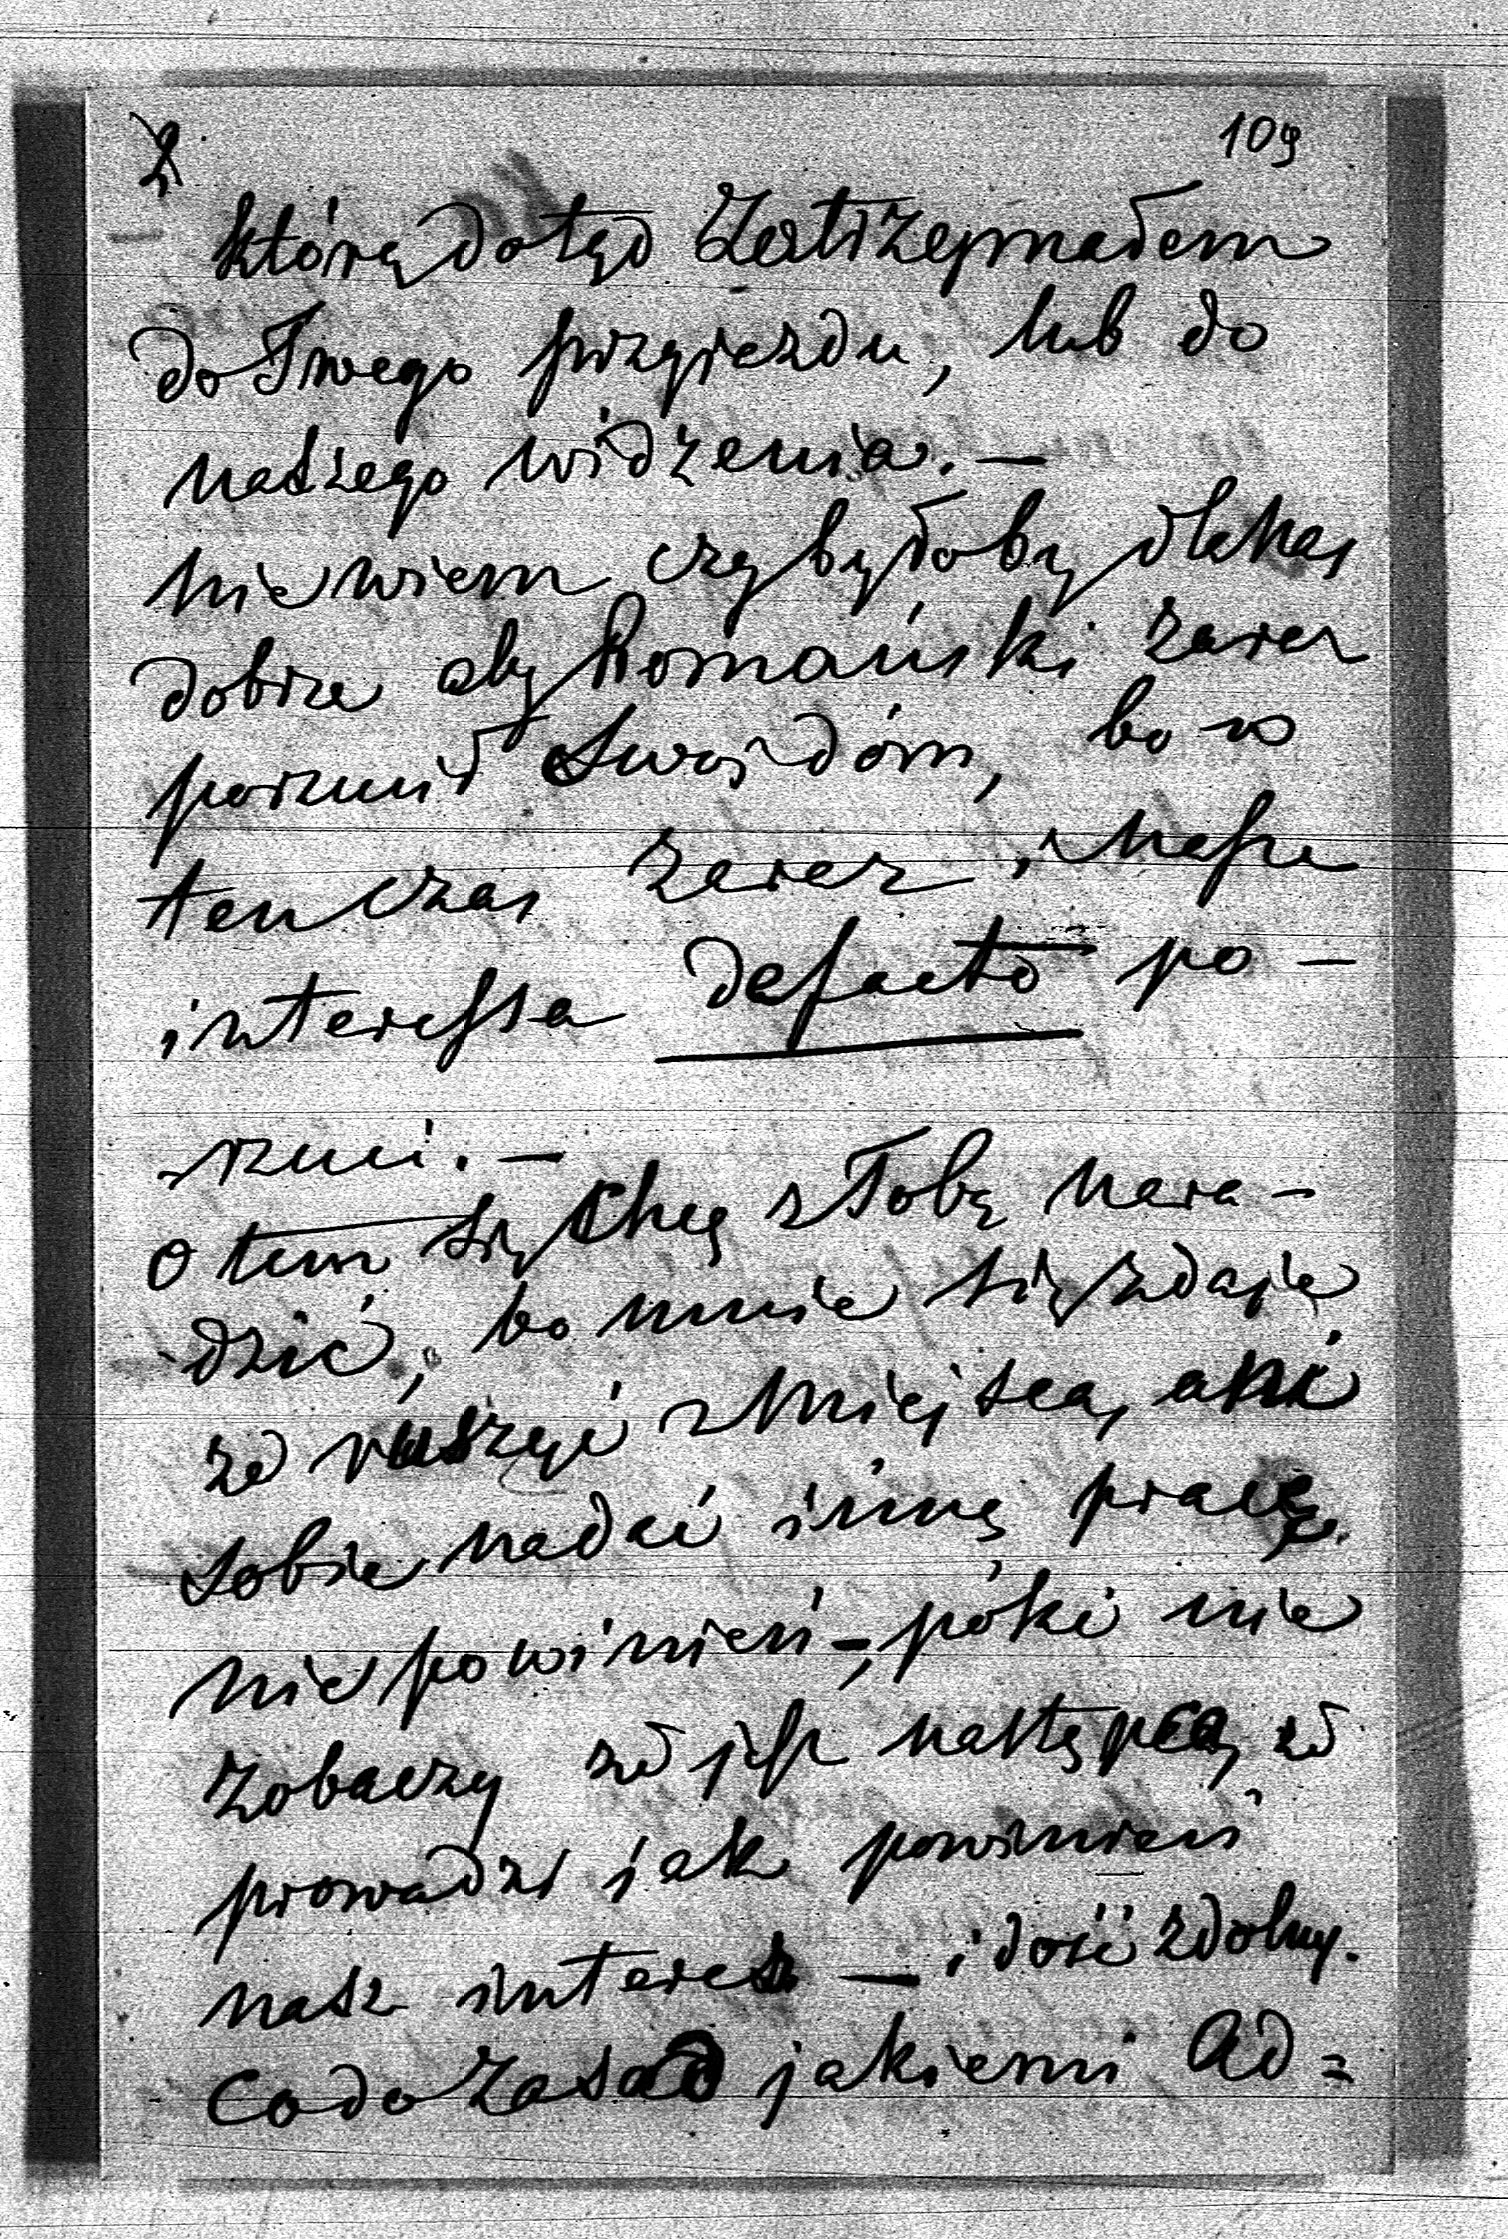 2. 109
którą dotąd zatrzymałem
do Twego przyjazdu, lub do
naszego widzenia. —
nie wiem czy byłoby dla nas
dobrze aby Romański zaraz
porzucił swój dóm, bo w
ten czas zaraz i nasze
interessa defacto po —
rzuci. —
o tem się chcę z Tobą nara —
dzić, bo mnie się zdaje
że ruszyć z miejsca, ani
sobie nadać inną pracę
nie powinien —, póki nie
zobaczy że jest następca, że
prowadzi jak powinien
nasz interes — i dość zdolny.
co do zasad jakiemi Ad =